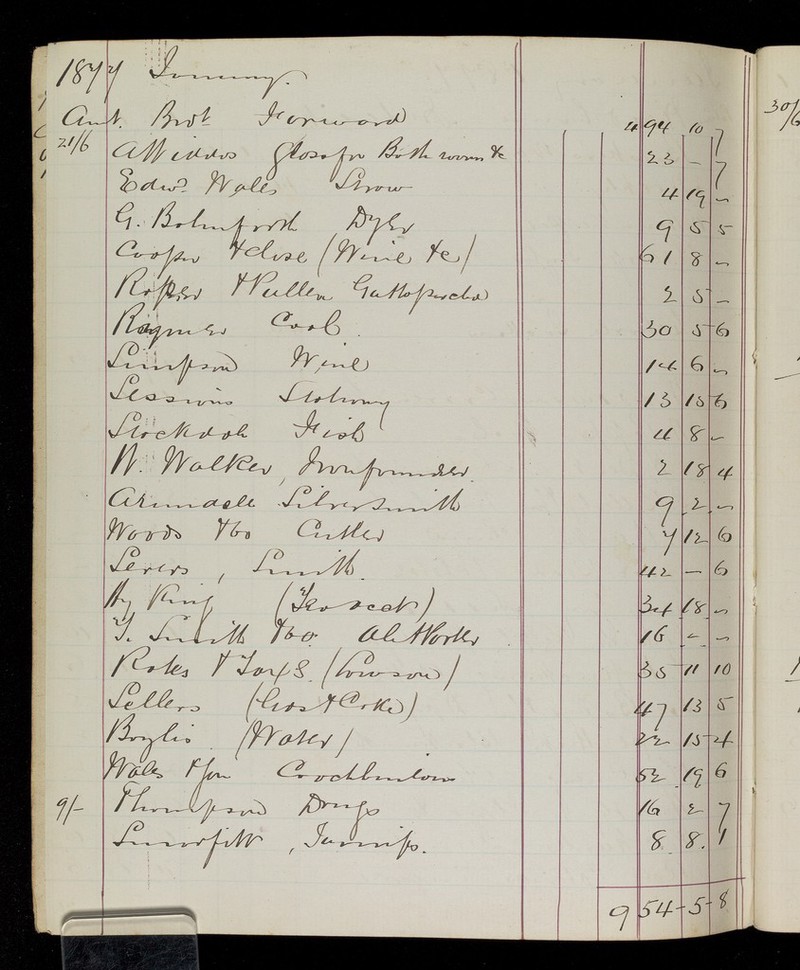 1877 January.
Amt. Brot Forward 494 10 7
21/6 for Bath rooms &c 23 - 7
Edwd. Wales Straw 4 19 -
G. Dyer 9 5 5
Cooper & Close (Wine &c) 61 8 -
Roper & Pullen Guttapercha 2 5 -
Raymer Coal. 30 5 6
Simpson Wine 14 6 -
Sessions Stationry 13 15 6
Stockdale Fish 4 8 -
W. Walker, Ironfounder. 2 18 4
Arundale Silversmith 9 2 -
Woods & Co Cutler 7 12 6
, Smith. 42 - 6
Hy King ( ) 34 18 -
T. Smith & Co. Ale & Porter 16 - -
Rates & Taxes. (Cowson) 35 11 10
Sellers (Gas & Coke) 47 13 5
Baylis. (Water) 22 15 4
Wales & Son Coachbuilders 52 19 6
9/- Thompson Drugs 16 2 7
, Turnips. 8. 8. 1
954-5-8
30/6